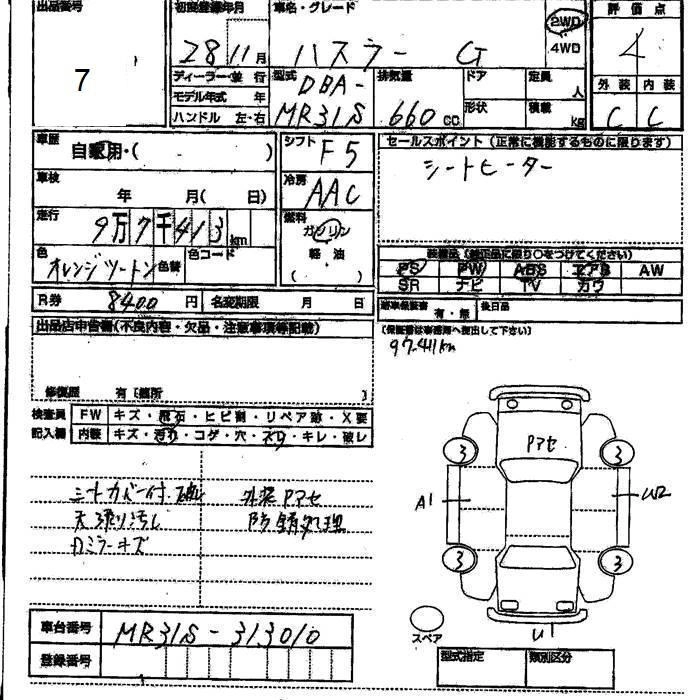 出品番号
7
初度登録年月
28 11月
車名・グレード
ハスラー G
2WD
4WD
評価点
4
外装 内装
C C
ディーラー・並行
モデル年式 年
ハンドル 左・右
型式
DBA-
MR31S
排気量
660 cc
ドア
形状
定員
人
積載
kg
車歴
自家用・( )
車検
年 月( 日)
走行
9万7千413 km
色
オレンジツートン
色替
色コード
R券
8400円
名変期限 月 日
シフト
F5
冷房
AAC
燃料
ガソリン
軽油
( )
セールスポイント(正常に機能するものに限ります)
シートヒーター
装備品(純正品に限り○をつけてください)
PS PW ABS エアB AW
SR ナビ TV カワ
新車保証書
有・無
後日品
(保証書は事務局へ提出して下さい)
97.411km
出品店申告書(不良内容・欠品・注意事項等記載)
修復歴 有〔箇所 〕
検査員
記入欄
FW キズ・飛石・ヒビ割・リペア跡・X要
内装 キズ・汚れ・コゲ・穴・スリ・キレ・破レ
シートカバー付
天張り汚し
Dミラーキズ
外装Pアセ
防錆処理
Pアセ
3 3
A1
W2
3 3
スペア
U1
車台番号
MR31S-313010
登録番号
型式指定
類別区分